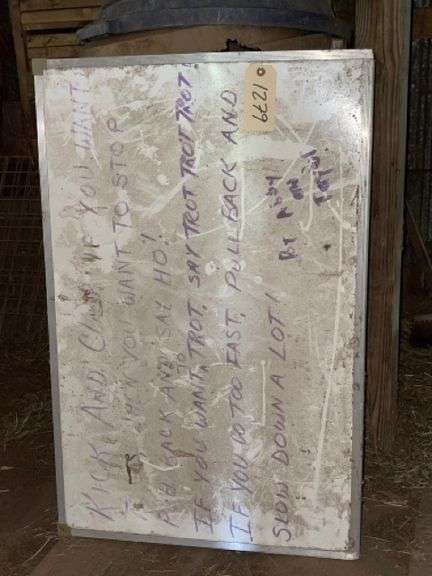 KICK AND CLICK IF YOU WANT
WHEN YOU WANT TO STOP
PULL BACK AND SAY HO!
IF YOU WANT TO TROT, SAY TROT TROT TROT
IF YOU GO TOO FAST, PULL BACK AND
SLOW DOWN A LOT!
BY Abby
1279